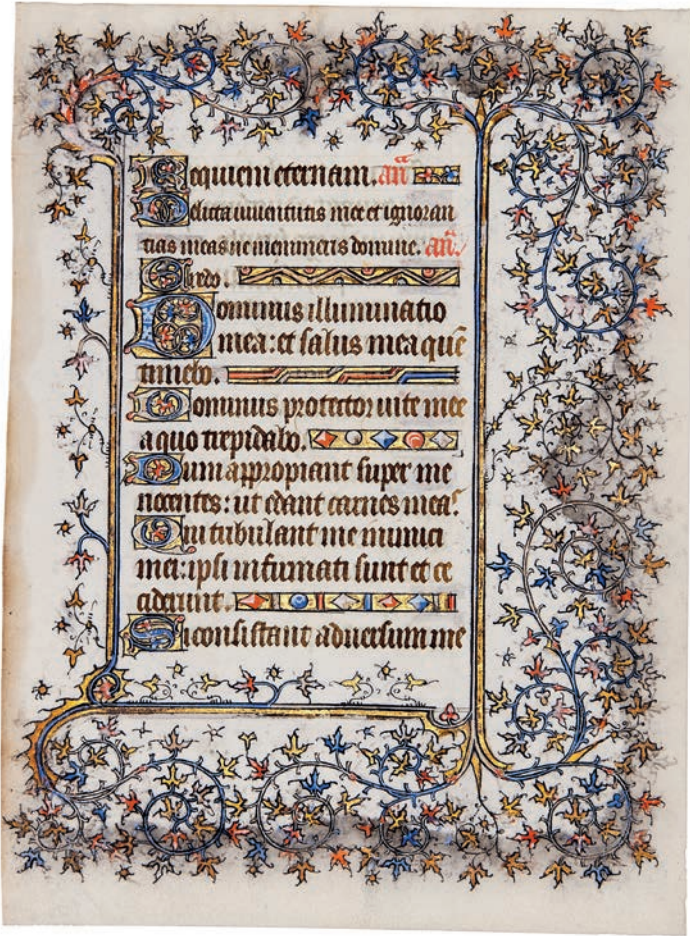 Requiem eternam. an̄
Delicta iuventutis mee et ignoran
tias meas ne memineris domine. an̄.
Credo.
Dominus illuminatio
mea: et salus mea quē
timebo.
Dominus protector uite mee
a quo trepidabo.
Dum appropiant super me
nocentes: ut edant carnes meas.
Qui tribulant me inimici
mei: ipsi infirmati sunt et ce
ciderunt.
Si consistant adversum me